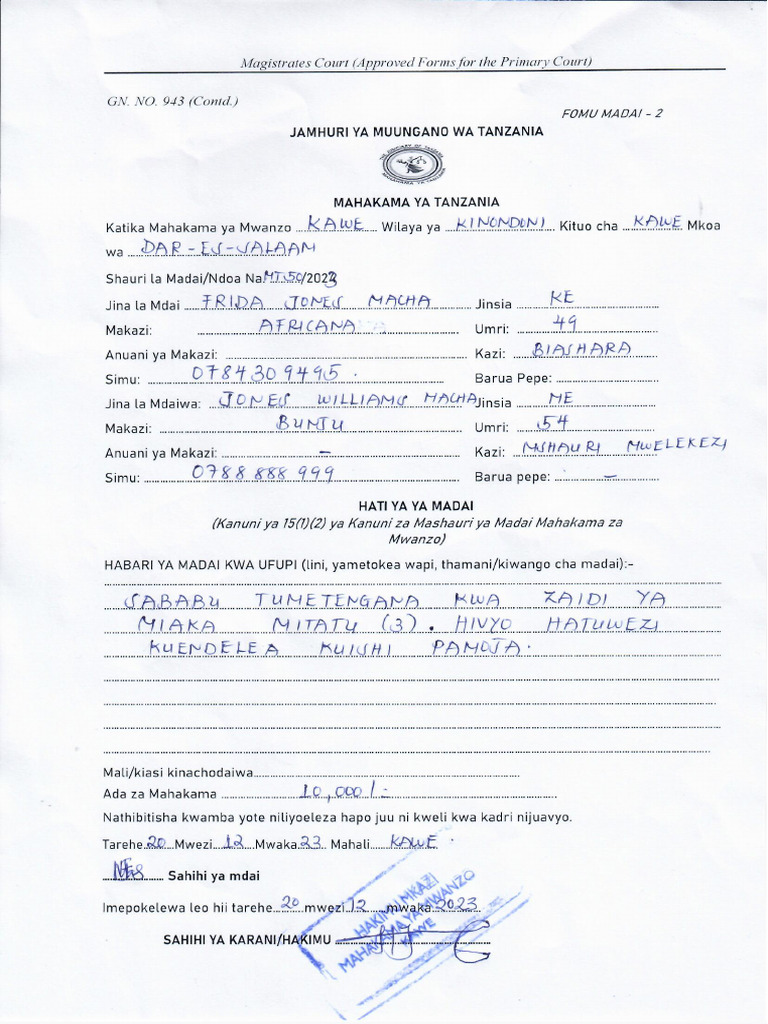 Magistrates Court (Approved Forms for the Primary Court)
GN. NO. 943 (Contd.)
FOMU MADAI – 2
JAMHURI YA MUUNGANO WA TANZANIA
THE JUDICIARY OF TANZANIA
MAHAKAMA YA TANZANIA
MAHAKAMA YA TANZANIA
Katika Mahakama ya Mwanzo KAWE Wilaya ya KINONDONI Kituo cha KAWE Mkoa
wa DAR-ES-SALAAM
Shauri la Madai/Ndoa Na MT.50/2023
Jina la Mdai FRIDA JONES MACHA Jinsia KE
Makazi: AFRICANA Umri: 49
Anuani ya Makazi: Kazi: BIASHARA
Simu: 0784309495. Barua Pepe:
Jina la Mdaiwa: JONES WILLIAMS MACHA Jinsia ME
Makazi: BUNJU Umri: 54
Anuani ya Makazi: – Kazi: MSHAURI MWELEKEZI
Simu: 0788 888 999 Barua pepe: –
HATI YA YA MADAI
(Kanuni ya 15(1)(2) ya Kanuni za Mashauri ya Madai Mahakama za
Mwanzo)
HABARI YA MADAI KWA UFUPI (lini, yametokea wapi, thamani/kiwango cha madai):-
SABABU TUMETENGANA KWA ZAIDI YA
MIAKA MITATU (3). HIVYO HATUWEZI
KUENDELEA KUISHI PAMOJA.
Mali/kiasi kinachodaiwa
Ada za Mahakama 10,000/=
Nathibitisha kwamba yote niliyoeleza hapo juu ni kweli kwa kadri nijuavyo.
Tarehe 20 Mwezi 12 Mwaka 23 Mahali KAWE
Sahihi ya mdai
Imepokelewa leo hii tarehe 20 mwezi 12 mwaka 2023
SAHIHI YA KARANI/HAKIMU
HAKIMU MKAZI
MAHAKAMA YA MWANZO
KAWE